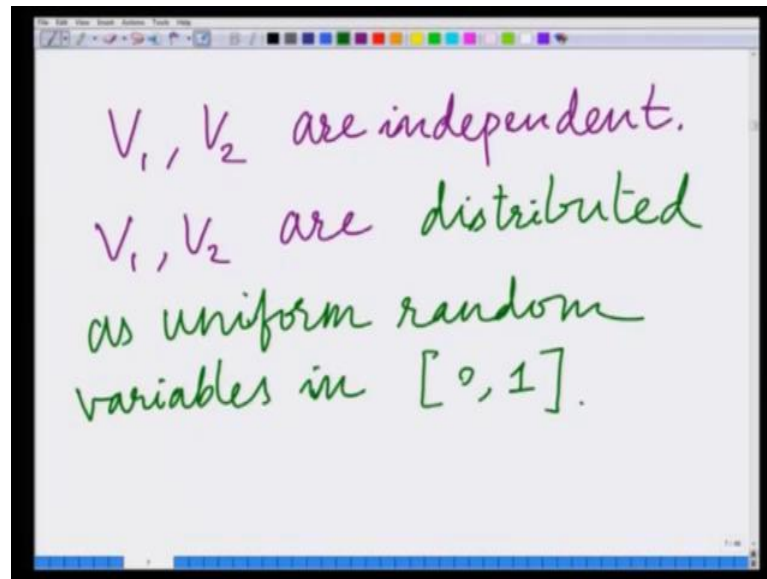 File Edit View Insert Actions Tools Help
V₁, V₂ are independent.
V₁, V₂ are distributed
as uniform random
variables in [0, 1].